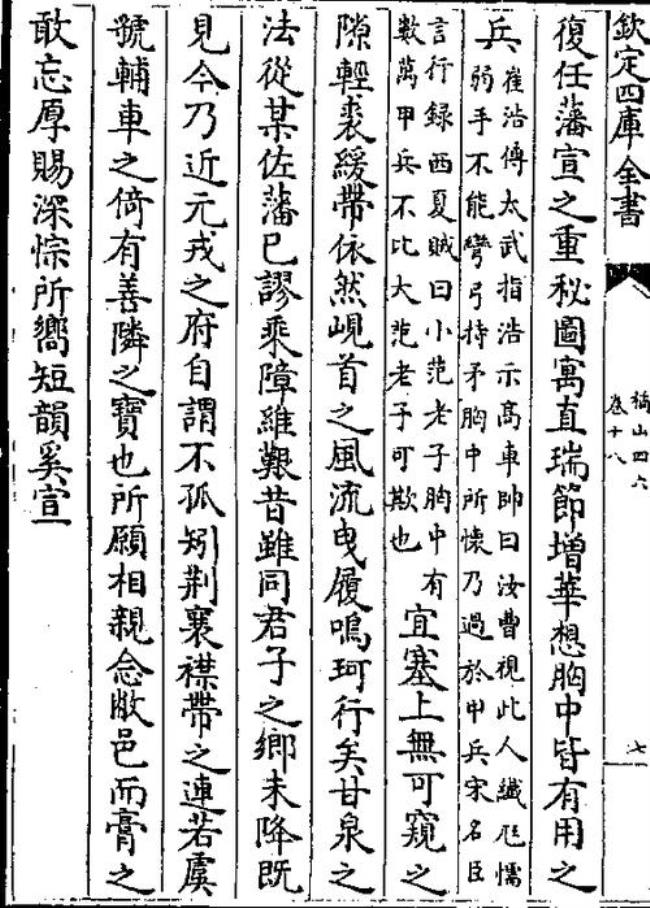 欽定四庫全書
橘山四六
卷十八
七
復任藩宣之重秘圖寓直瑞節增華想胸中皆有用之
兵
崔浩傳太武指浩示髙車帥曰汝曹視此人纎尫懦
弱手不能彎弓持矛胸中所懐乃過於甲兵宋名臣
言行録西夏賊曰小范老子胸中有
數萬甲兵不比大范老子可欺也
宜塞上無可窺之
隙輕裘緩帶依然峴首之風流曳履鳴珂行矣甘泉之
法從某佐藩已謬乘障維艱昔雖同君子之鄉未降既
見今乃近元戎之府自謂不孤矧荆襄襟帶之連若虞
虢輔車之倚有善隣之寶也所願相親念敝邑而膏之
敢忘厚賜深悰所嚮短韻奚宣